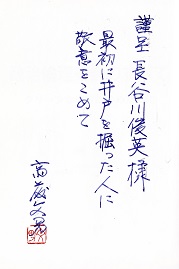 謹呈 長谷川俊英様
最初に井戸を掘った人に
敬意をこめて